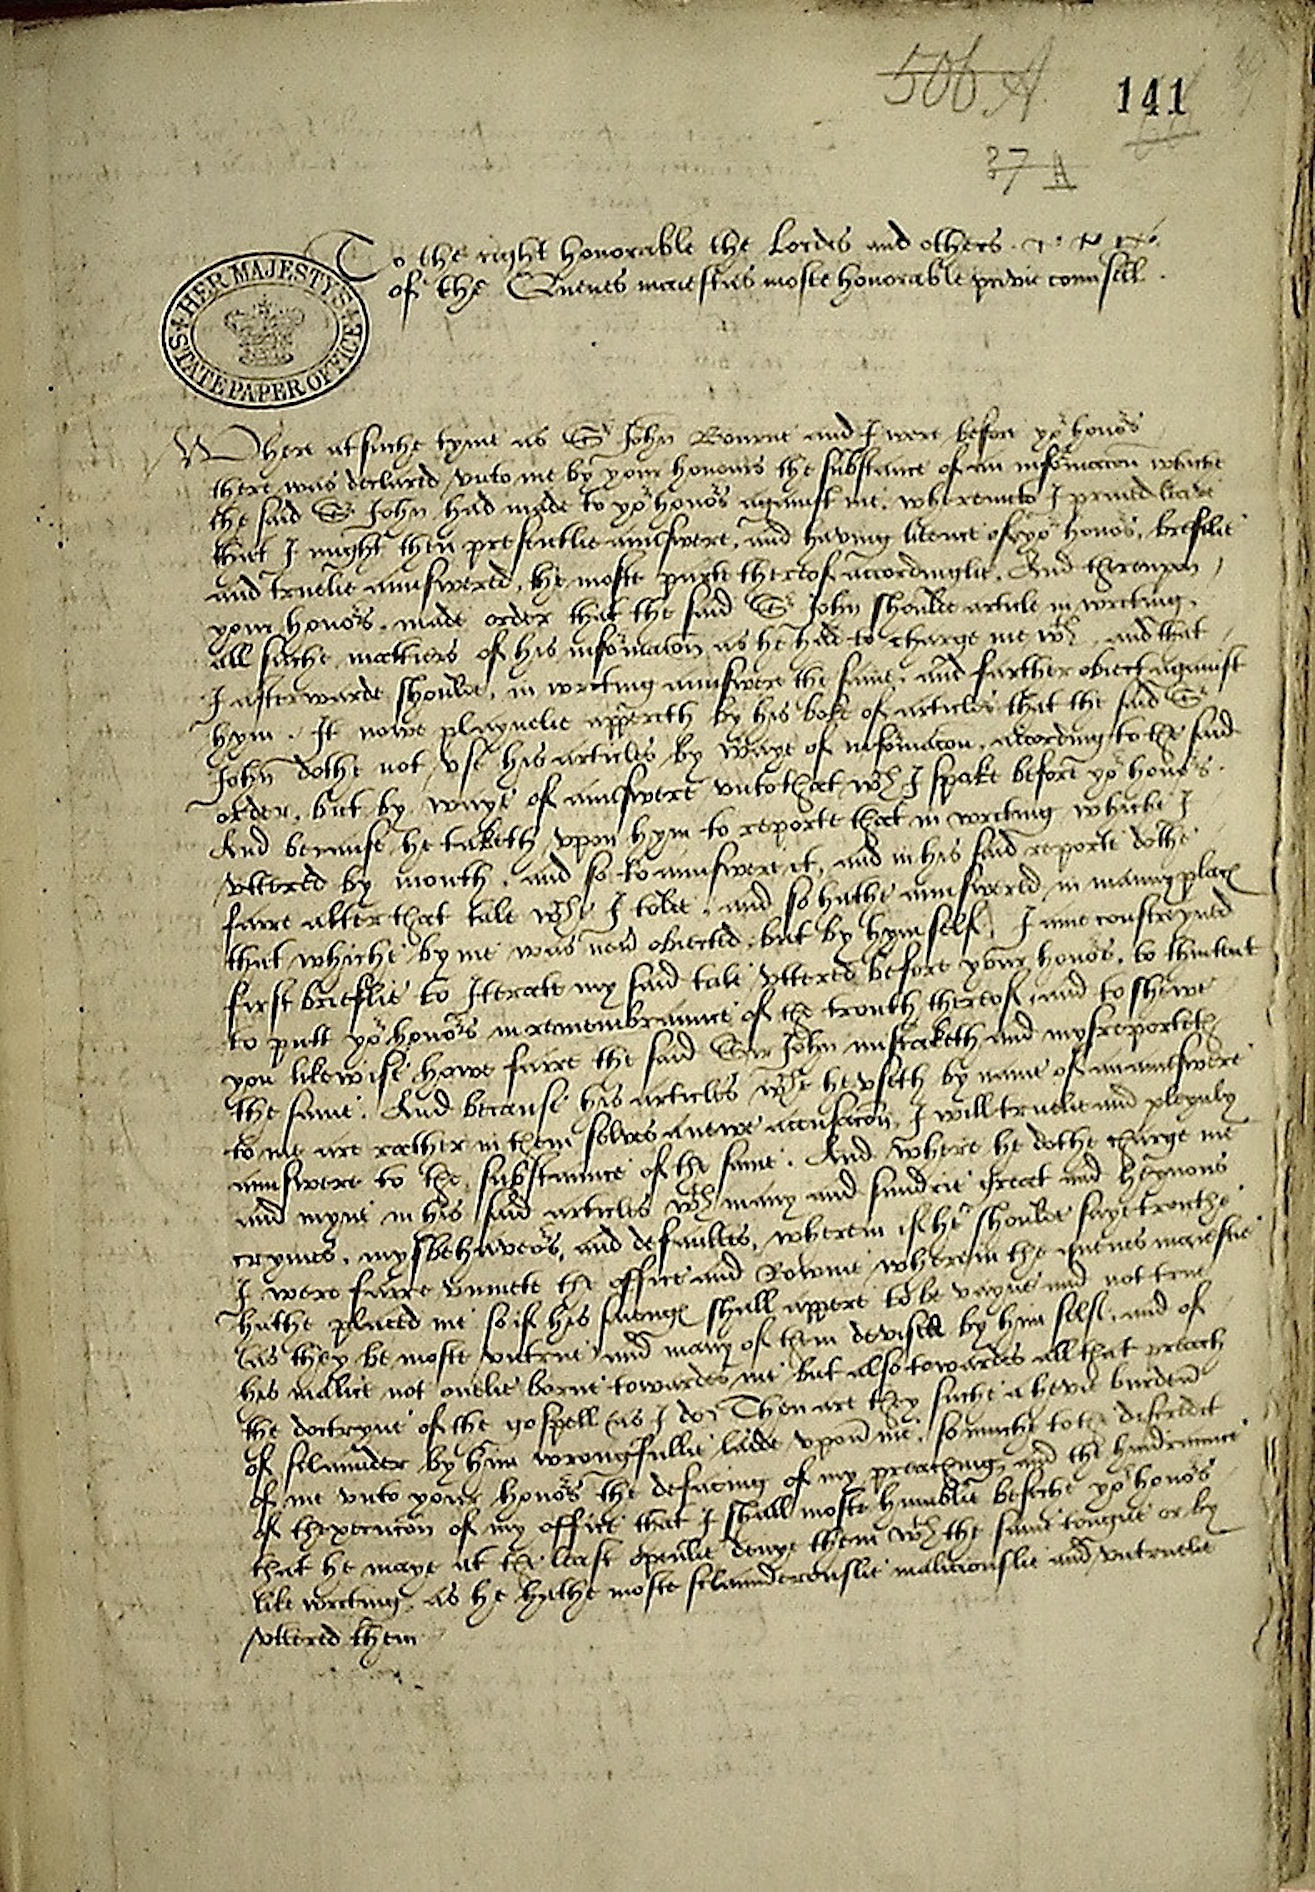 506 A
141
37 A
To the right honorable the Lordes and others
of the Quenes maiesties moste honorable privie counsell.
HER MAJESTY'S STATE PAPER OFFICE
Where at suche tyme as Sr John Bourne and I were before yor honors
there was declared vnto me by your honours the substance of an informacon whiche
the said Sr John had made to yor honors against me. whereunto I praied leave
that I might then presentlie aunswere, and having licence of yor honors, brieflie
and truelie aunswered, the moste parte thereof accordinglie. And therevpon
your honors, made order that the said Sr John sholde article in writing,
all suche matters of his informacon as he had to charge me wth, and that
I afterwarde sholde, in writing aunswere the same, and further obiect against
hym. It nowe playnelie appereth by his boke of articles that the said Sr
John dothe not vse his articles by waye of informacon, according to the said
order, but by waye of aunswere vnto that wch I spake before yor honors.
And because he taketh vpon hym to reporte that in writing whiche I
vttered by mouth, and so to aunswere it, and in his said reporte dothe
farre alter that tale wche I tolde, and so hathe aunswered in manny places
that whiche by me was never obiected, but by hym self, I ame constreyned
first brieflie to Iterate my said tale vttered before your honors, to thintent
to putt yor honors in remembraunce of the trouth thereof, and to shewe
you likewise howe farre the said Sir John mistaketh and mysreporteth
the same. And because his articles wche he vseth by name of an aunswere
to me are rather in them selves a newe accusacon, I will truelie and pleynly
aunswere to the substaunce of the same. And where he dothe charge me
and myne in his said articles wth many and sundrie great and heynous
crymes, mysbehaveors, and defaultes, wherein if he sholde saye trouthe
I were farre vnmete the office and Rowme wherein the quenes maiestie
hathe placed me so if his sainges shall appere to be vayne and not true
(as they be moste vntrue) and many of them devised by him self, and of
his malice not onelie borne towardes me but also towardes all that preach
the doctryne of the gospell (as I do) Then are they suche a hevie burden
of sclaunder by him wrongfullie ladde vpon me, so muche to the discredit
of me vnto your honors the defacing of my preaching, and the hindraunce
of thexecucon of my office that I shall moste humblie beseche yor honors
that he maye at the least openlie denye them wth the same tongue or by
like writing, as he hathe moste sclaunderouslie maliciouslie and vntruelie
vttered them